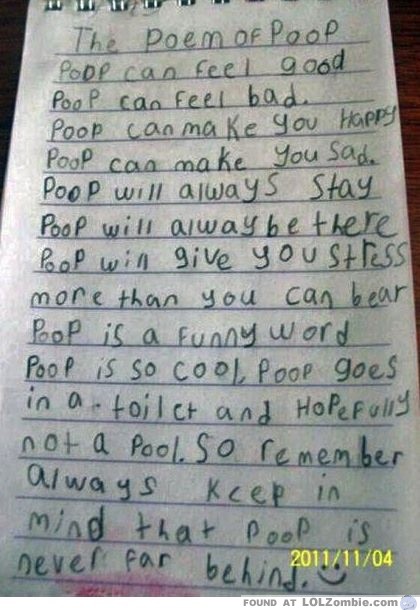 The Poem of Poop
Poop can feel good
Poop can feel bad.
Poop can make you Happy
Poop can make you sad.
Poop will always stay
Poop will alway be there
Poop will give you stress
more than you can bear
Poop is a funny word
Poop is so cool, Poop goes
in a toilet and Hopefully
not a Pool. So remember
always keep in
mind that Poop is
never far behind.
2011/11/04
FOUND AT LOLZombie.com